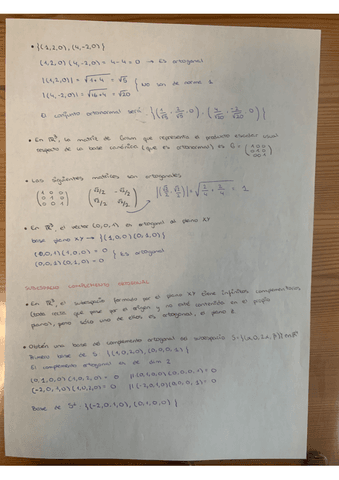 • {(1,2,0), (4,-2,0)}
(1,2,0)(4,-2,0) = 4-4 = 0 → Es ortogonal
|(1,2,0)| = √1+4 = √5
|(4,-2,0)| = √16+4 = √20 } No son de norma 1
El conjunto ortonormal será {(1/√5, 2/√5, 0), (4/√20, -2/√20, 0)}
• En ℝ³, la matriz de Gram que representa el producto escalar usual
respecto de la base canónica (que es ortonormal) es G = (1 0 0 / 0 1 0 / 0 0 1)
• Las siguientes matrices son ortogonales
(1 0 0 / 0 1 0 / 0 0 1) (√2/2 -√2/2 / √2/2 √2/2) |(√2/2, √2/2)| = √2/4 + 2/4 = 1
• En ℝ³, el vector (0,0,1) es ortogonal al plano XY
base plano XY → {(1,0,0)(0,2,0)}
(0,0,1)(1,0,0) = 0
(0,0,1)(0,2,0) = 0 } Es ortogonal
SUBESPACIO COMPLEMENTO ORTOGONAL
• En ℝ³, el subespacio formado por el plano XY tiene infinitos complementarios
(toda recta que pase por el origen y no esté contenida en el propio
plano), pero sólo uno de ellos es ortogonal, el plano Z
• Obtén una base del complemento ortogonal del subespacio S=
base de S: {(1,0,2,0), (0,0,0,1)}
El complemento ortogonal es de dim 2
(0,1,0,0)(1,0,2,0) = 0 || (0,1,0,0)(0,0,0,1) = 0
(-2,0,1,0)(1,0,2,0) = 0 || (-2,0,1,0)(0,0,0,1) = 0
Base de S⊥: {(-2,0,1,0), (0,1,0,0)}